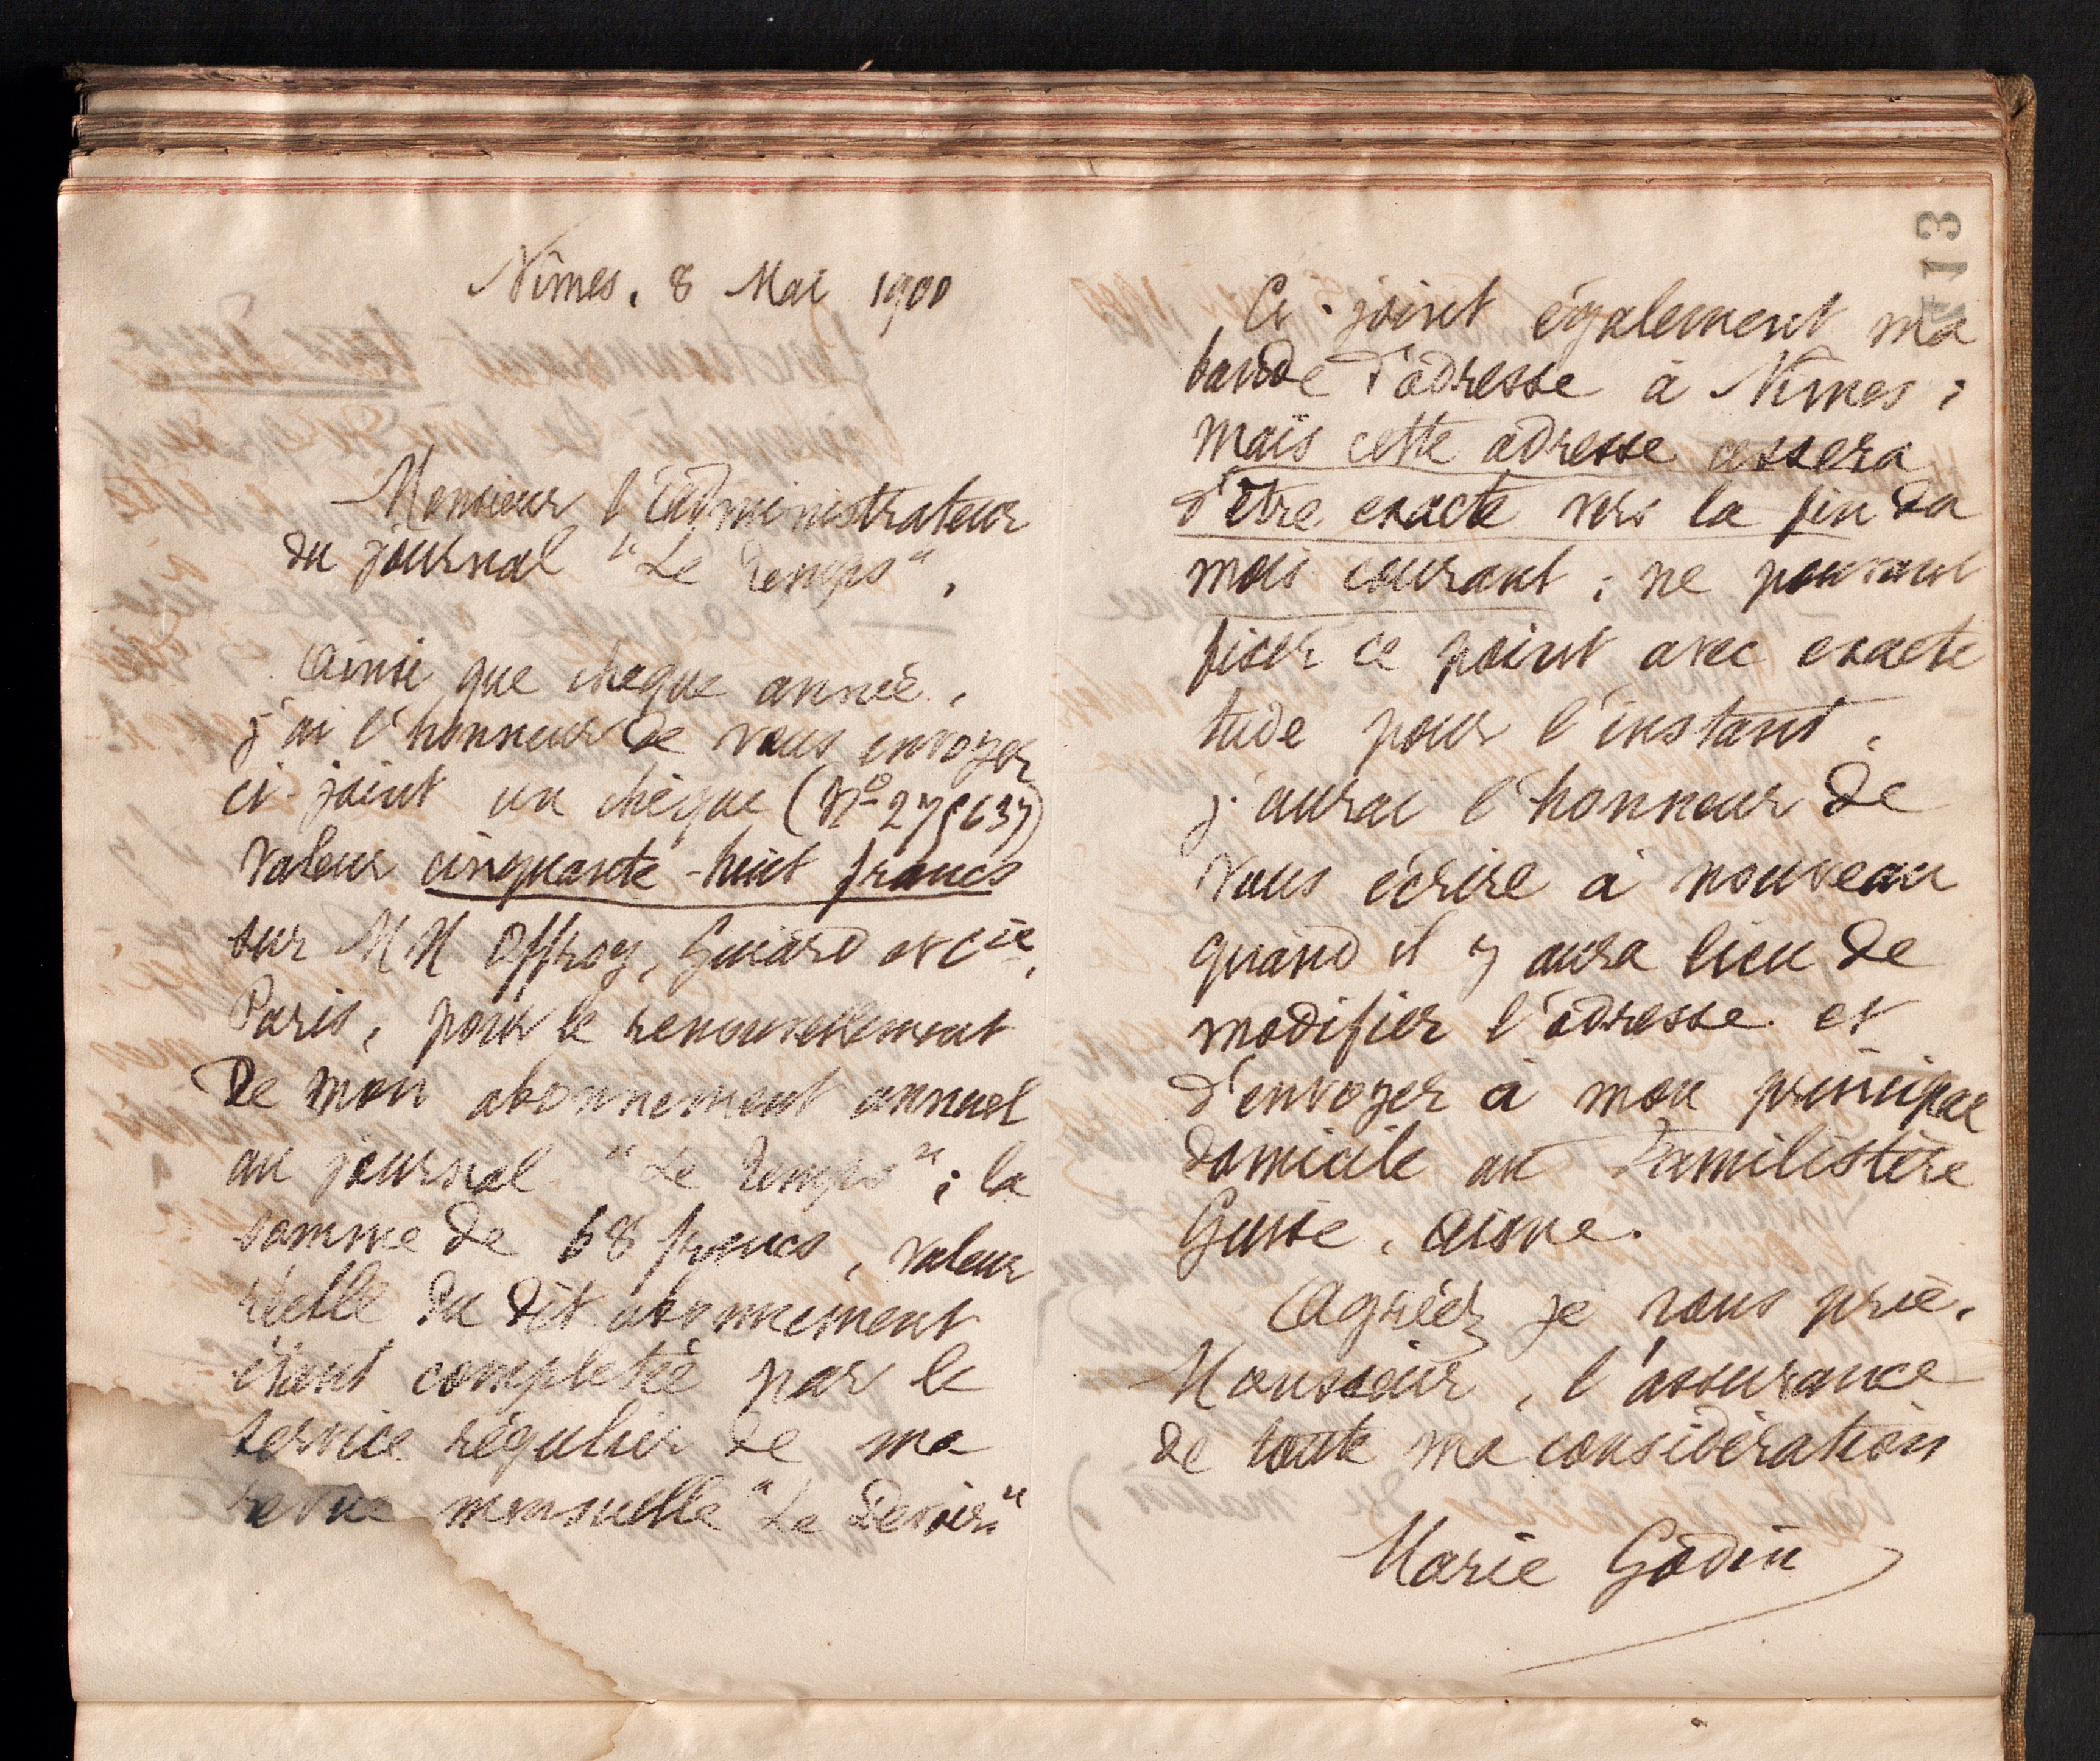 Nîmes, 8 Mai 1900
Monsieur l'Administrateur
du journal "Le Temps",
Ainsi que chaque année,
j'ai l'honneur de vous envoyer
ci-joint un chèque
valeur cinquante-huit francs
sur MM Offroy, Guiard et Cie,
Paris, pour le renouvellement
de mon abonnement annuel
au journal "Le Temps"; la
somme de 68 francs, valeur
réelle du dit abonnement
étant complétée par le
service régulier de ma
revue mensuelle "Le Devoir"
113
Ci-joint également ma
bande d'adresse à Nîmes;
mais cette adresse cessera
d'être exacte vers la fin du
mois courant; ne pouvant
fixer ce point avec exacti
tude pour l'instant,
j'aurai l'honneur de
vous écrire à nouveau
quand il y aura lieu de
modifier l'adresse et
d'envoyer à mon principal
domicile au Familistère
Guise, Aisne.
Agréez je vous prie,
Monsieur, l'assurance
de toute ma considération
Marie Godin